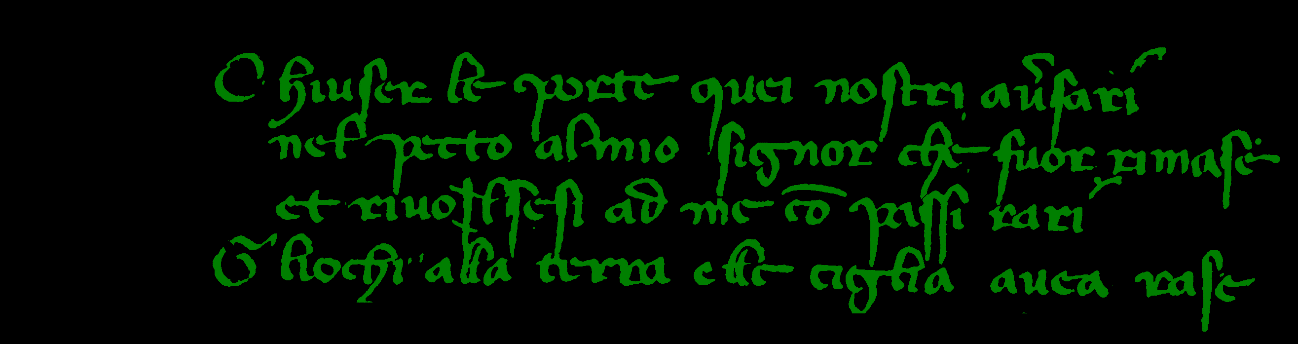 Chiuser le porte quei nostri auſari
nel petto al mio ſignor che fuor rimaſe
et riuolſeſi ad me cō paſſi rari
Gliochi alla terra e lle ciglia auea raſe